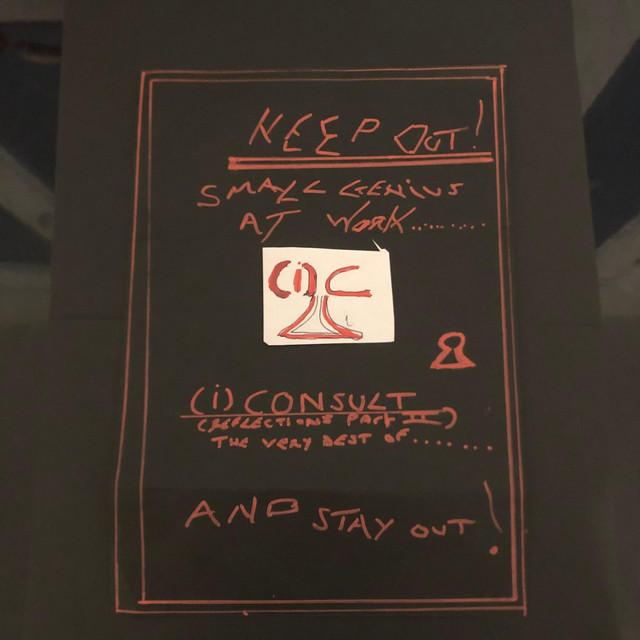 KEEP OUT!
SMALL GENIUS
AT WORK..........
(i) C
(i) CONSULT
(REFLECTIONS PART III)
THE VERY BEST OF........
AND STAY OUT!